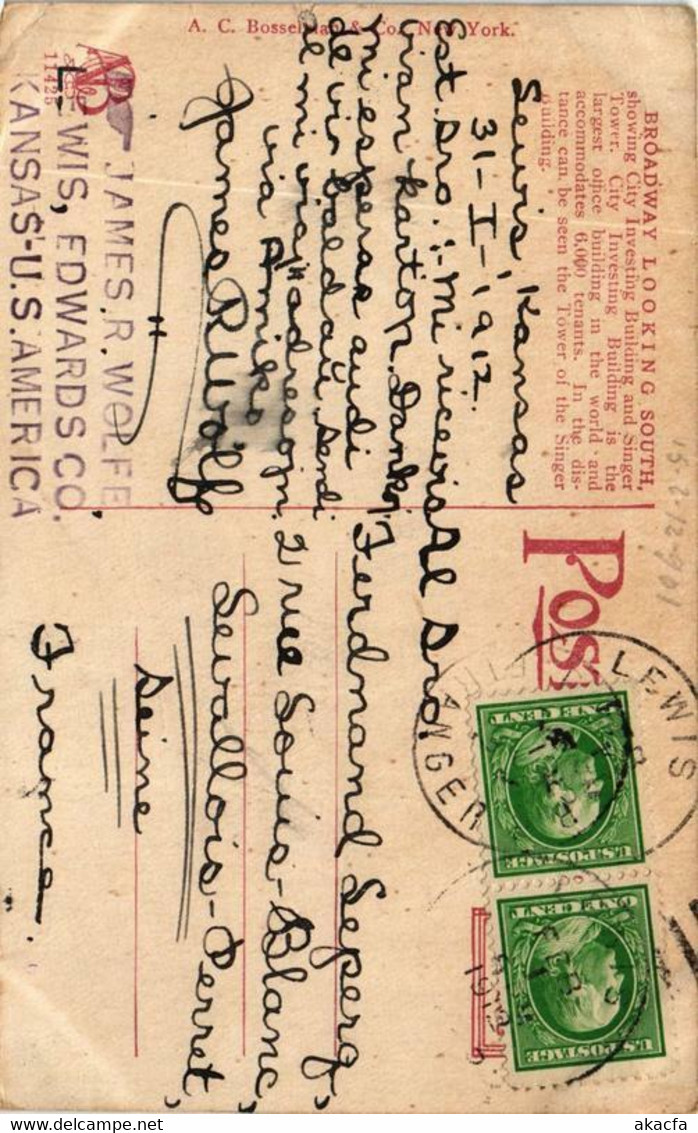 A. C. Bosselman & Co., New York.
BROADWAY LOOKING SOUTH,
showing City Investing Building and Singer
Tower. City Investing Building is the
largest office building in the world and
accommodates 6,000 tenants. In the dis-
tance can be seen the Tower of the Singer
Building.
11425
Lewis, Kansas
31-I-1912.
Est. Sro.:- Mi ricevis
vian karton. Dankoj
Mi esperas audi
de vi baldaŭ. Sendi
al mi viajn adresojn.
via Amiko
James R. Wolfe
JAMES. R. WOLFE
L WIS, EDWARDS CO.
KANSAS-U.S. AMERICA
Post
Al Sro.
Ferdnand Seperg,
2 rue Louis-Blanc,
Levallois-Perret,
Seine
France.
15-2-12-901
LEWIS
ETRANGER
ONE CENT
U.S. POSTAGE
ONE CENT
U.S. POSTAGE
FEB
1912
akacfa